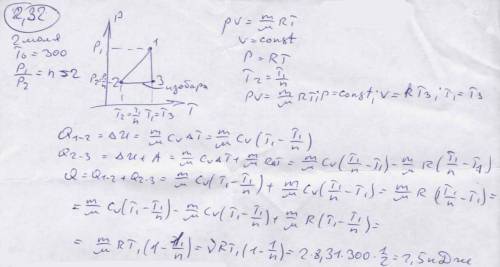 2,32
2 моля
T₀ = 300
P₁/P₂ = n = 2
P
P₁
1
P₂ = P₁/n
2
3
изобара
T₂ = T₁/n
T₁ = T₃
T
PV = m/μ RT
V = const
P = RT
T₂ = T₁/n
PV = m/μ RT; P = const; V = RT₃; T₁ = T₃
Q₁₋₂ = ΔU = m/μ Cv ΔT = m/μ Cv (T₁ - T₁/n)
Q₂₋₃ = ΔU + A = m/μ Cv ΔT + m/μ RΔT = m/μ Cv (T₁/n - T₁) - m/μ R (T₁/n - T₁)
Q = Q₁₋₂ + Q₂₋₃ = m/μ Cv (T₁ - T₁/n) + m/μ Cv (T₁/n - T₁) = m/μ R (T₁/n - T₁) =
= m/μ Cv (T₁ - T₁/n) - m/μ Cv (T₁ - T₁/n) + m/μ R (T₁ - T₁/n) =
= m/μ RT₁ (1 - 1/n) = νRT₁ (1 - 1/n) = 2·8,31·300·1/2 = 2,5 кДж